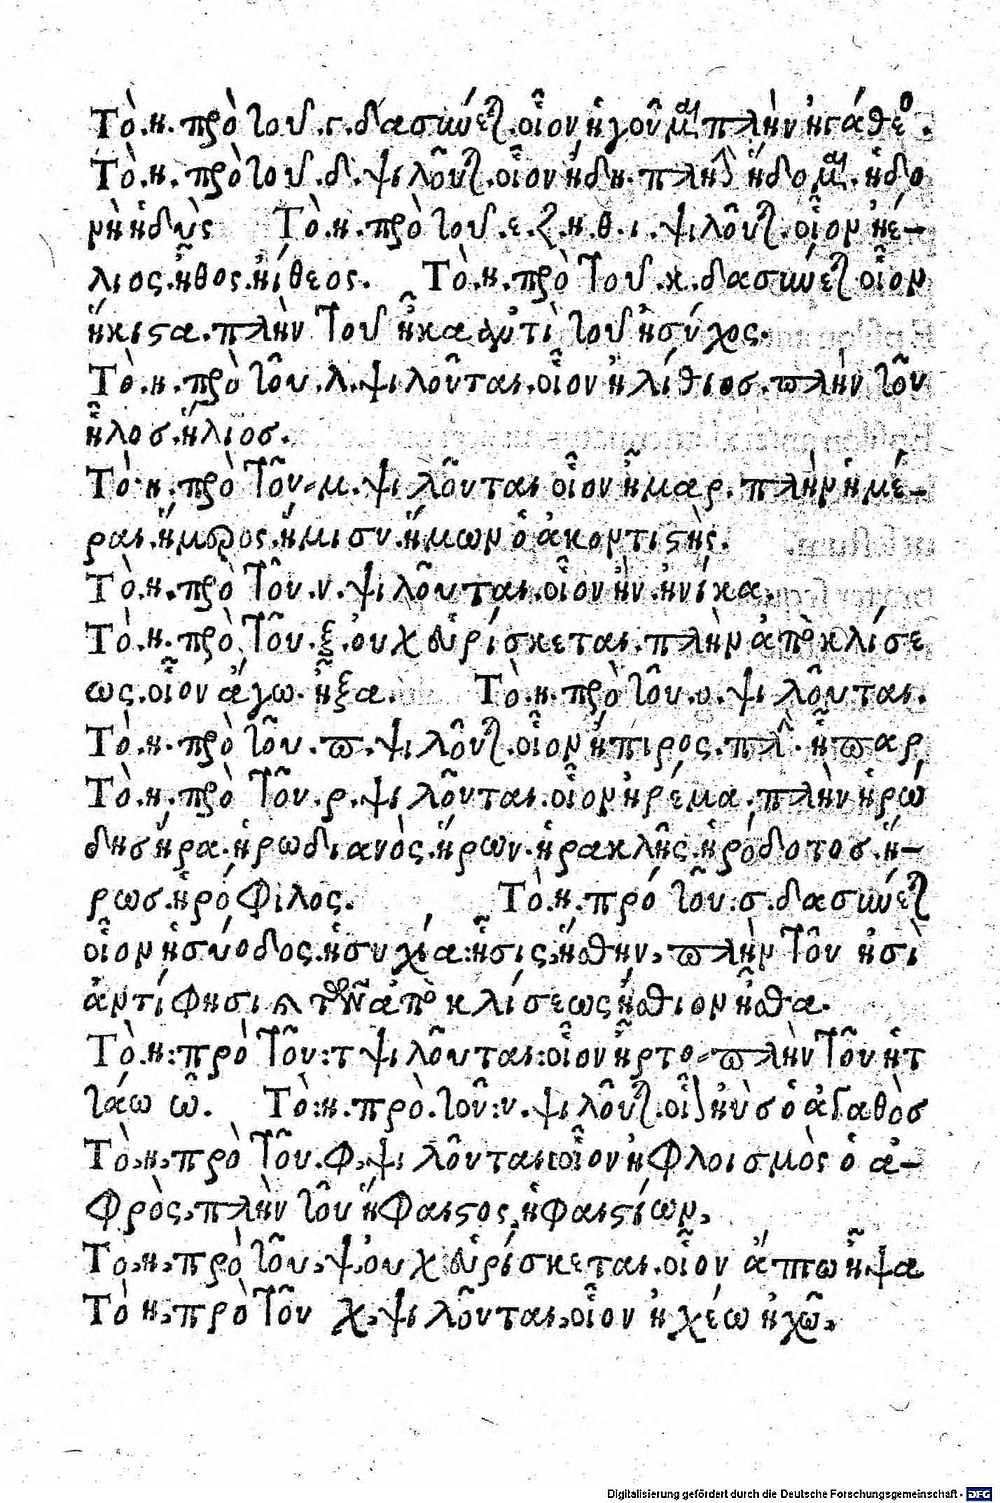 Τὸ.η. πρὸ τοῦ .γ. δασύνετ. οἷον ἡγοῦμαι πλὴν ἠγάθεος.
Τὸ.η. πρὸ τοῦ .δ. ψιλοῦτ. οἷον ἤδη. πλὴν ἥδομαι. ἡδο
νὴ ἡδὺς Τὸ.η. πρὸ τοῦ .ε.ζ.η.θ.ι. ψιλοῦτ. οἷον ἠέ-
λιος. ἦθος. ἠίθεος. Τὸ.η. πρὸ τοῦ .κ. δασύνετ οἷον
ἥκιστα. πλὴν τοῦ ἦκα ἀντὶ τοῦ ἡσύχος.
Τὸ.η. πρὸ τοῦ .λ. ψιλοῦται. οἷον ἠλίθιοσ. πλὴν τοῦ
ἧλοσ. ἥλιοσ.
Τὸ.η. πρὸ τοῦ μ. ψιλοῦται οἷον ἦμαρ. πλὴν ἡμέ-
ραι. ἥμερος. ἥμισυ. ἥμων ὁ ἀκοντιστὴς.
Τὸ.η. πρὸ τοῦ .ν. ψιλοῦται. οἷον ἠν. ἡνίκα.
Τὸ.η. πρὸ τοῦ .ξ. οὐχ εὑρίσκεται. πλὴν ἀπὸ κλίσε
ως. οἷον ἄγω. ἦξα. Τὸ.η. πρὸ τοῦ .ο. ψιλοῦται.
Τὸ.η. πρὸ τοῦ .π. ψιλοῦτ. οἷον ἤπιρος. πλὴν. ἧπαρ
Τὸ.η. πρὸ τοῦ .ρ. ψιλοῦται. οἷον ἠρέμα. πλὴν ἡρώ
δησ ἥρα. ἡρωδιανὸς. ἥρων. ἡρακλῆς. ἡρόδοτοσ. ἥ-
ρωσ. ἡρόφιλος. Τὸ.η. πρό τοῦ:σ. δασύνετ
οἷον ἡσύοδος. ἡσυχία: ἧσις, ἥσθην, πλὴν τοῦ ἠσὶ
ἀντί φησι ἀπὸ κλίσεως ἤσθιον ἦσθα.
Τὸ.η: πρὸ τοῦ:τ ψιλοῦται: οἷον ἦρτο πλὴν τοῦ ἡτ
τάω ῶ. Τὸ:η. πρὸ. τοῦ:υ. ψιλοῦτ. οἷον ἠὺσ ὁ ἀγαθὸσ
Τὸ,η, πρὸ τοῦ .φ, ψιλοῦται οἷον ἠφλοισμὸς ὁ ἀ-
φρὸς, πλὴν τοῦ ἥφαιστος, ἡφαιστίων,
Τὸ,η, πρὸ τοῦ, ψ, οὐχ εὑρίσκεται. οἷον ἅπτω ἧψα
Τὸ η, πρὸ τοῦ χ, ψιλοῦται, οἷον ἠχέω ἠχῶ,
Digitalisierung gefördert durch die Deutsche Forschungsgemeinschaft - DFG